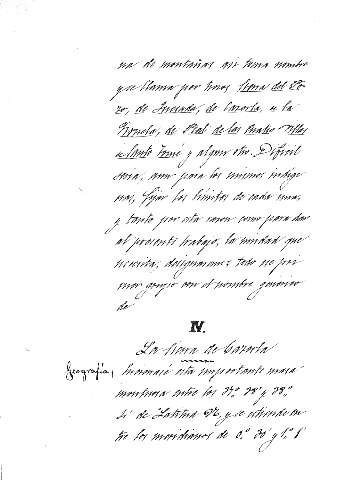 na de montañas así toma nombre
y se llama por unos Sierra del Po-
zo, de Quesada, de Cazorla, a la
Iruela, de Real de las cuatro Villas
o Santo Tomé y algun otro. Dificil
sería, aun para los mismos indige-
nas, fijar los límites de cada una,
y tanto por esta razon como para dar
al presente trabajo, la unidad que
necesita, designaremos todo ese pri-
mer grupo con el nombre genérico
de
IV.
La Sierra de Cazorla
Geografía,
esta importante masa
montuosa entre los 37.º 38' y 38.º
5' de Latitud N, y se extiende en-
tre los meridianos de 0.º 30' y 1.º 8'